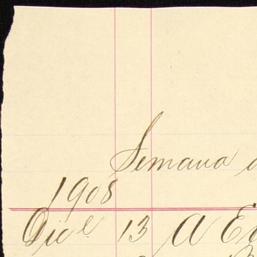 Semana d
1908
Dice 13 A E